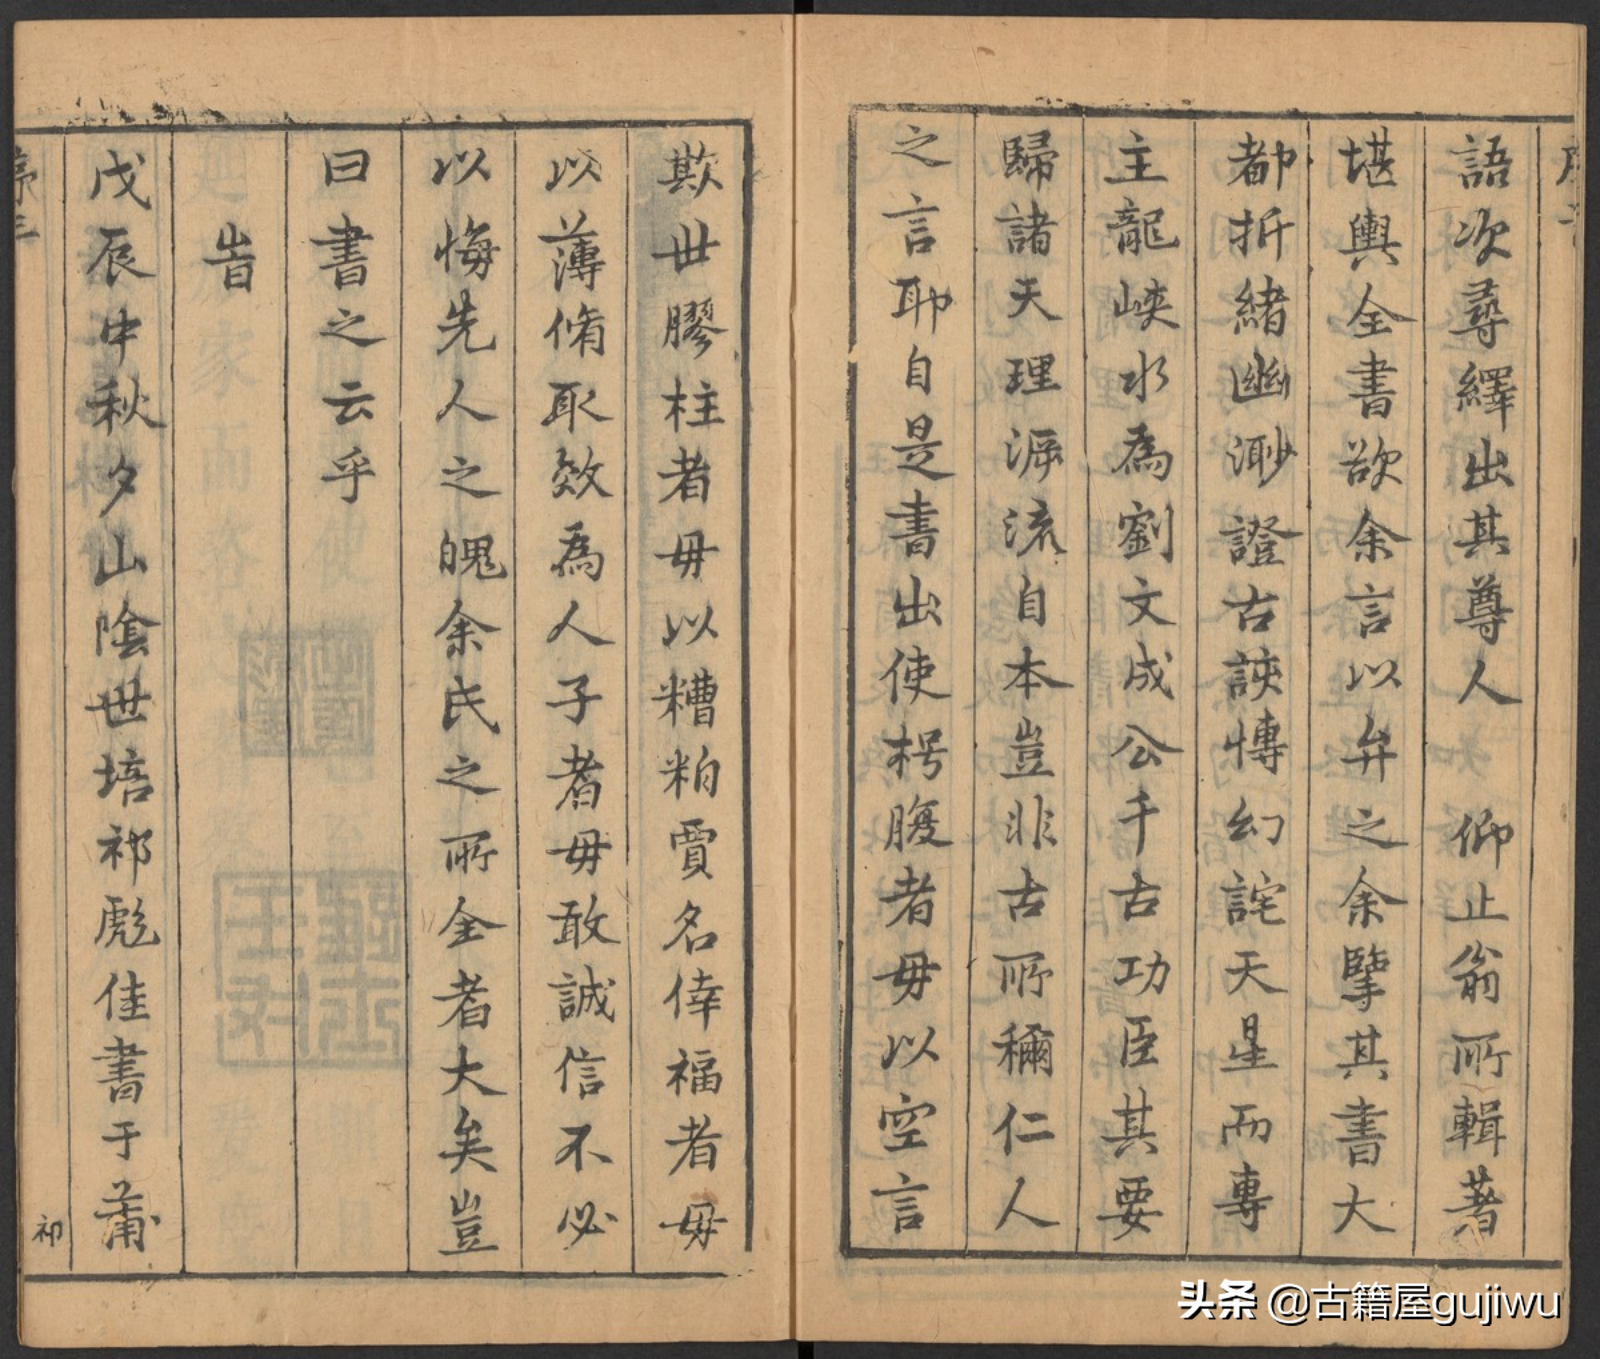 語次尋繹出其尊人　仰止翁所輯著
堪輿全書欲余言以弁之余擥其書大
都折緒幽渺證古誺慱幻詫天星而專
主龍峽水為劉文成公千古功臣其要
歸諸天理源流自本豈非古所稱仁人
之言耶自是書出使枵腹者毋以空言
欺世膠柱者毋以糟粕賈名倖福者毋
以薄脩取效為人子者毋敢誠信不必
以悔先人之魄余氏之所全者大矣豈
曰書之云乎
旹
戊辰中秋夕山陰世培祁彪佳書于蒲
序三
祁
头条 @古籍屋gujiwu